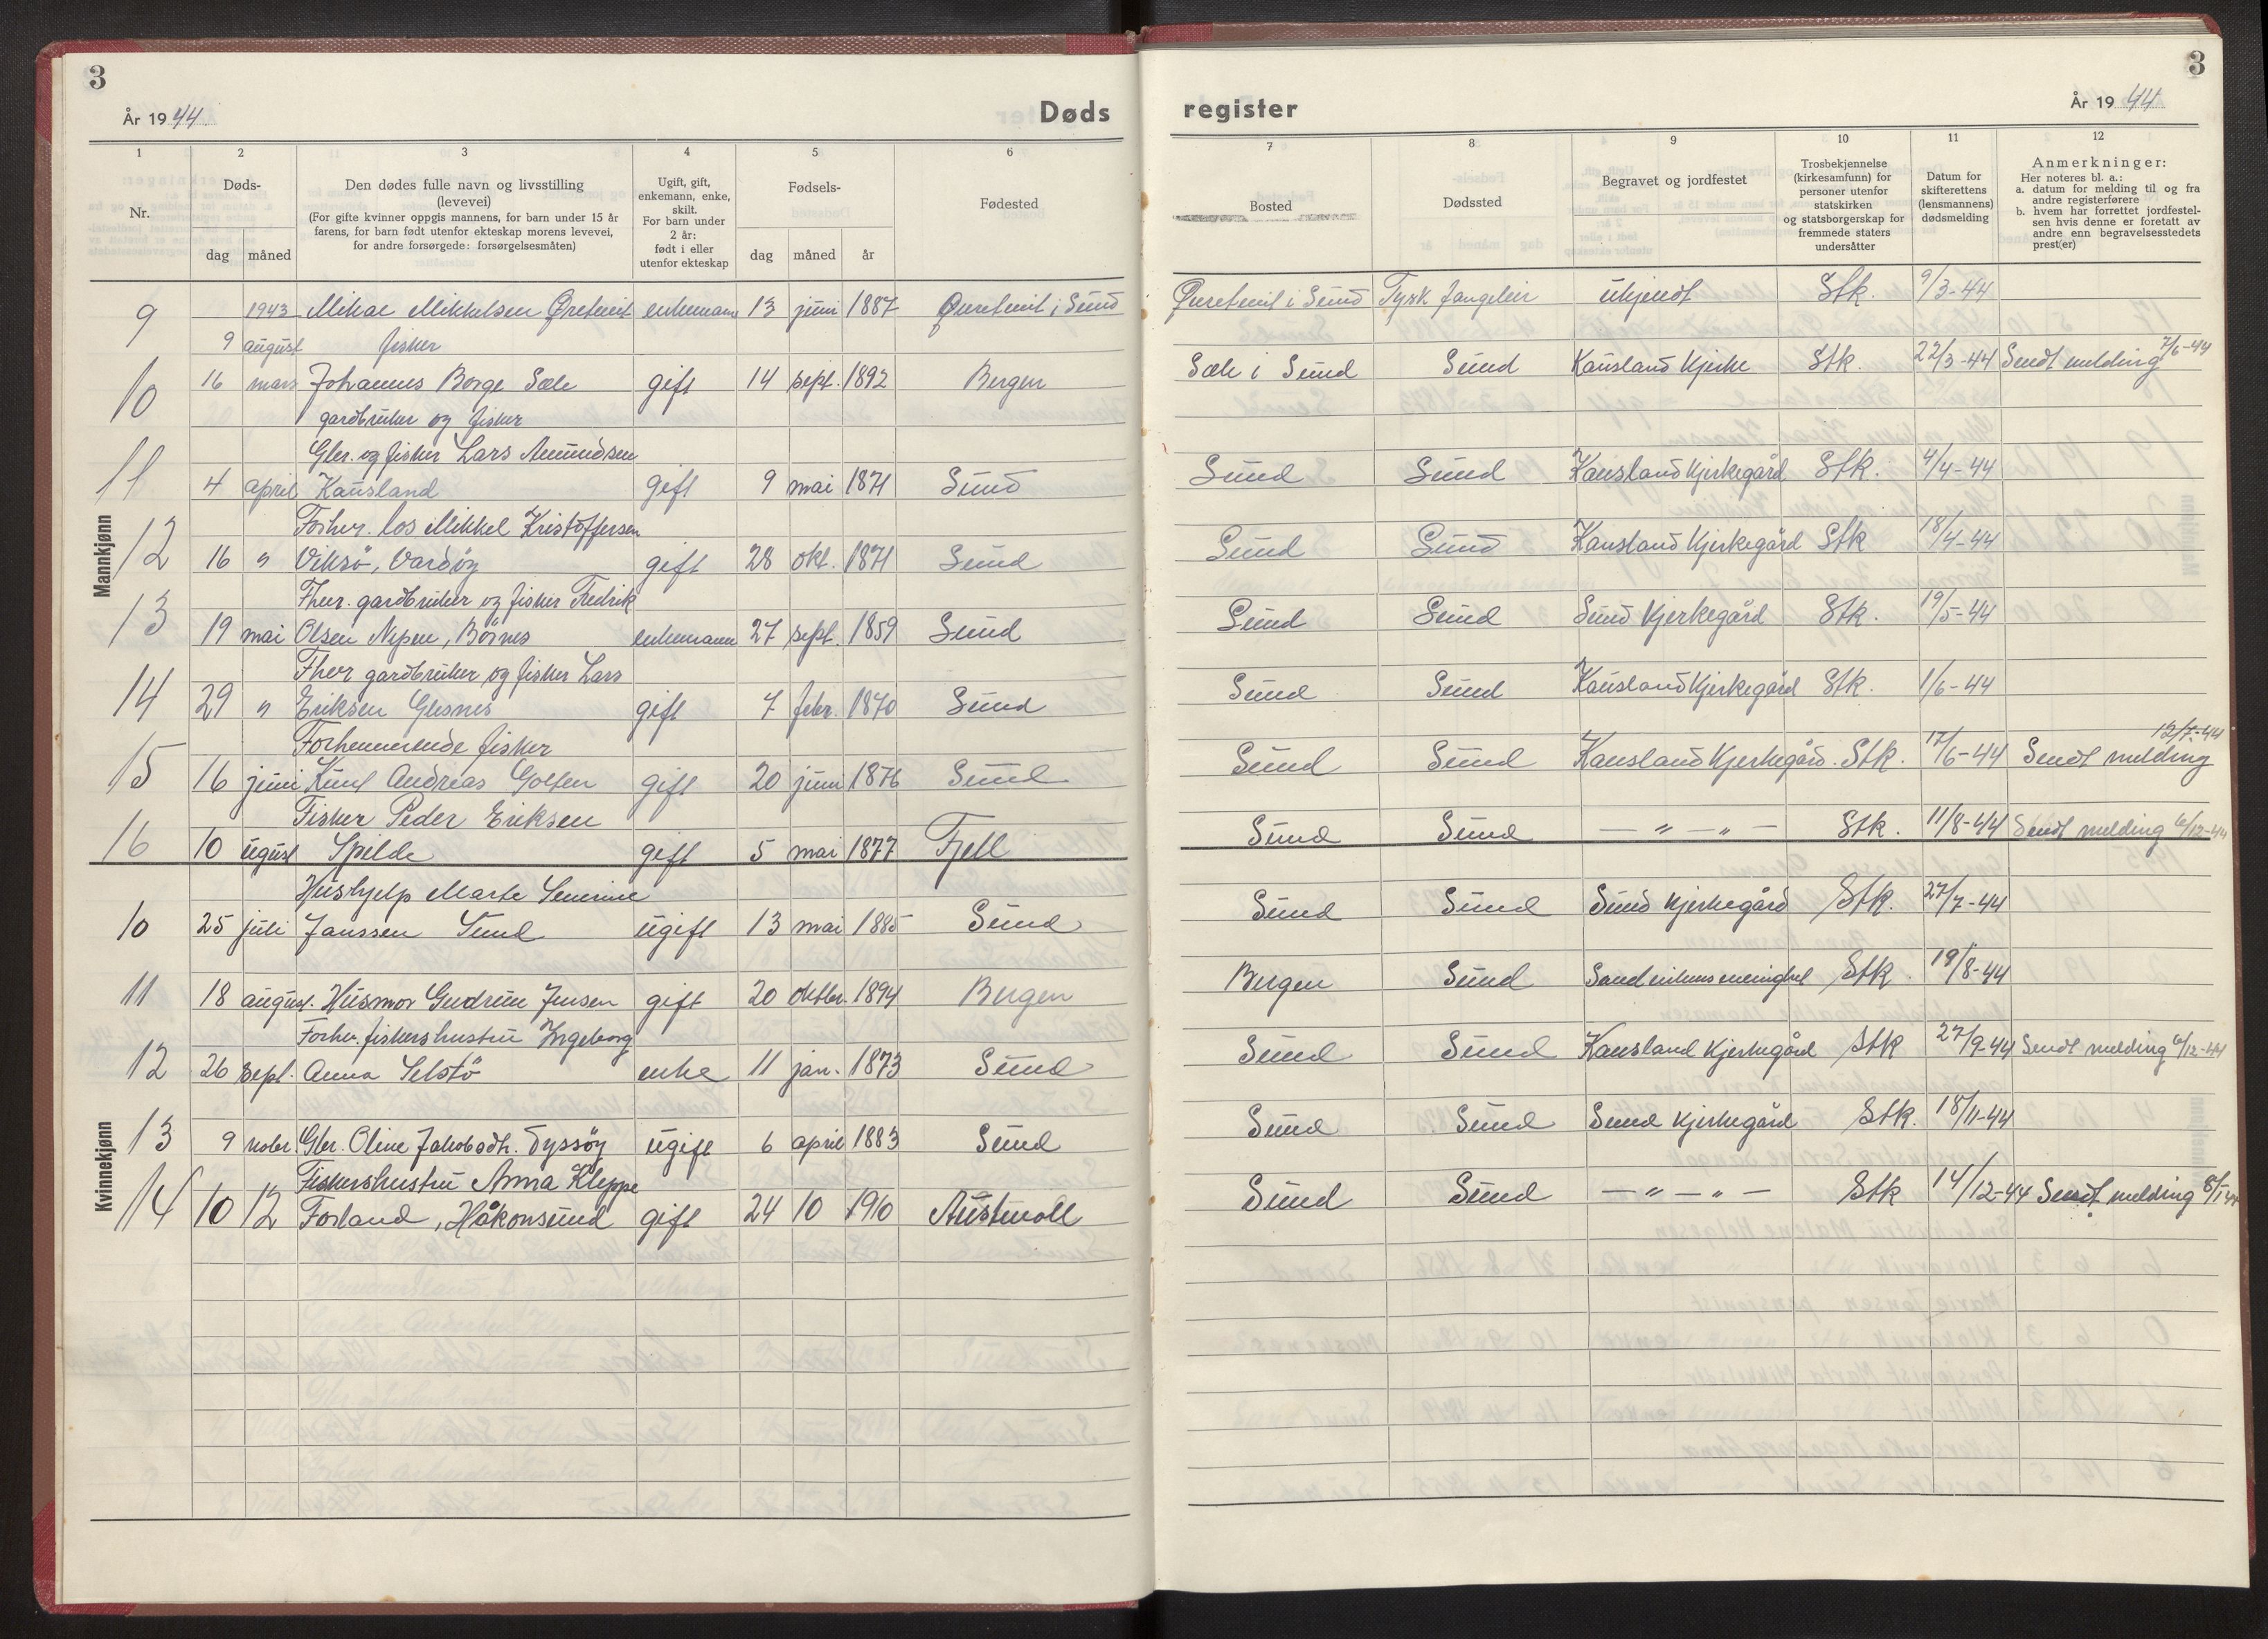 3
År 1944
Døds
1
2
3
4
5
6
Nr.
Døds-
dag
måned
Den dødes fulle navn og livsstilling
(levevei)
(For gifte kvinner oppgis mannens, for barn under 15 år
farens, for barn født utenfor ekteskap morens levevei,
for andre forsørgede: forsørgelsesmåten)
Ugift, gift,
enkemann, enke,
skilt.
For barn under
2 år:
født i eller
utenfor ekteskap
Fødsels-
dag
måned
år
Fødested
Mannkjønn
9 1943 Mikal Mikkelsen enkemann 13 juni 1887 i Sund
9 august fisker
10 16 mars Johannes Borge Sæle gift 14 sept. 1892 Bergen
gardbruker og fisker
Gbr. og fisker Lars Amundsen
11 4 april Kausland gift 9 mai 1871 Sund
Forhev. los Mikkel Kristoffersen
12 16 " Viksø, Vardøy gift 28 okt. 1871 Sund
Fhev. gardbruker og fisker Fredrik
13 19 mai Olsen Nipen, Börnes enkemann 27 sept. 1859 Sund
Fhev gardbruker og fisker Lars
14 29 " Eriksen Glesnes gift 7 febr. 1870 Sund
Forhenverende fisker
15 16 juni Knut Andreas Golten gift 20 juni 1876 Sund
Fisker Peder Eriksen
16 10 ugust Spilde gift 5 mai 1877 Fjell
Kvinnekjønn
Hushjelp Marte Severine
10 25 juli Janssen Sund ugift 13 mai 1885 Sund
11 18 august. Husmor Gudrun Jensen gift 20 oktbr. 1894 Bergen
Forhv. fiskershustru Ingeborg
12 26 sept. Anna Selstö enke 11 jan. 1873 Sund
13 9 nobr. Gbr. Oline Jakobsdtr. Tyssöy ugift 6 april 1883 Sund
Fiskershustru Anna Kleppe
14 10 12 Forland, Håkonsund gift 24 10 1910 Austevoll
3
register
År 1944
7
8
9
10
11
12
Bosted
Dødssted
Begravet og jordfestet
Trosbekjennelse
(kirkesamfunn) for
personer utenfor
statskirken
og statsborgerskap for
fremmede staters
undersåtter
Datum for
skifterettens
(lensmannens)
dødsmelding
Anmerkninger:
Her noteres bl. a.:
a. datum for melding til og fra
andre registerførere
b. hvem har forrettet jordfestel-
sen hvis denne er foretatt av
andre enn begravelsesstedets
prest(er)
i Sund Tysk fangeleir ukjendt Stk. 9/3-44
Sæle i Sund Sund Kausland Kjerke Stk. 22/3-44 Sendt melding 7/6-44
Sund Sund Kausland Kjerkegård Stk. 4/4-44
Sund Sund Kausland Kjerkegård Stk 18/4-44
Sund Sund Sund Kjerkegård Stk. 19/5-44
Sund Sund Kausland Kjerkegård Stk. 1/6-44
Sund Sund Kausland Kjerkegård. Stk. 17/6-44 Sendt melding 12/7-44
Sund Sund — " — " — Stk. 11/8-44 Sendt melding 6/12-44
Sund Sund Sund Kjerkegård Stk. 27/7-44
Bergen Sund Stk. 19/8-44
Sund Sund Kausland Kjerkegård Stk 27/9-44 Sendt melding 6/12-44
Sund Sund Sund Kjerkegård Stk. 18/11-44
Sund Sund — " — " — Stk 14/12-44 Sendt melding